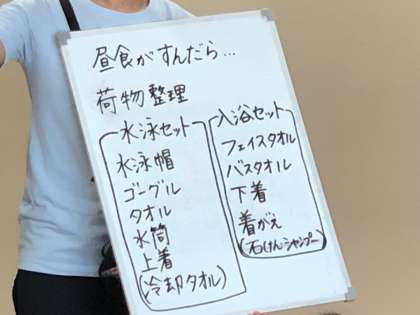 昼食がすんだら…
荷物整理
水泳セット
水泳帽
ゴーグル
タオル
水筒
上着
(冷却タオル)
入浴セット
フェイスタオル
バスタオル
下着
着がえ
(石けんシャンプー)